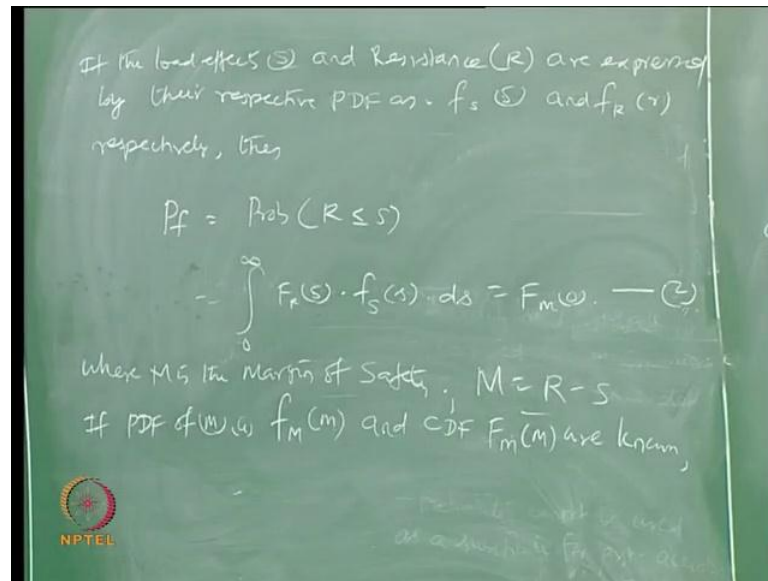 If the load effect (S) and Resistance (R) are expressed
by their respective PDF as. fs (S) and fR (r)
respectively, then
Pf = Prob (R ≤ S)
= ∫₀^∞ FR(S) · fs(s) ds = Fm(0). — (2)
where M is the Margin of Safety; M = R - S
If PDF of (M) as fM (m) and CDF Fm(M) are known,
as a
NPTEL